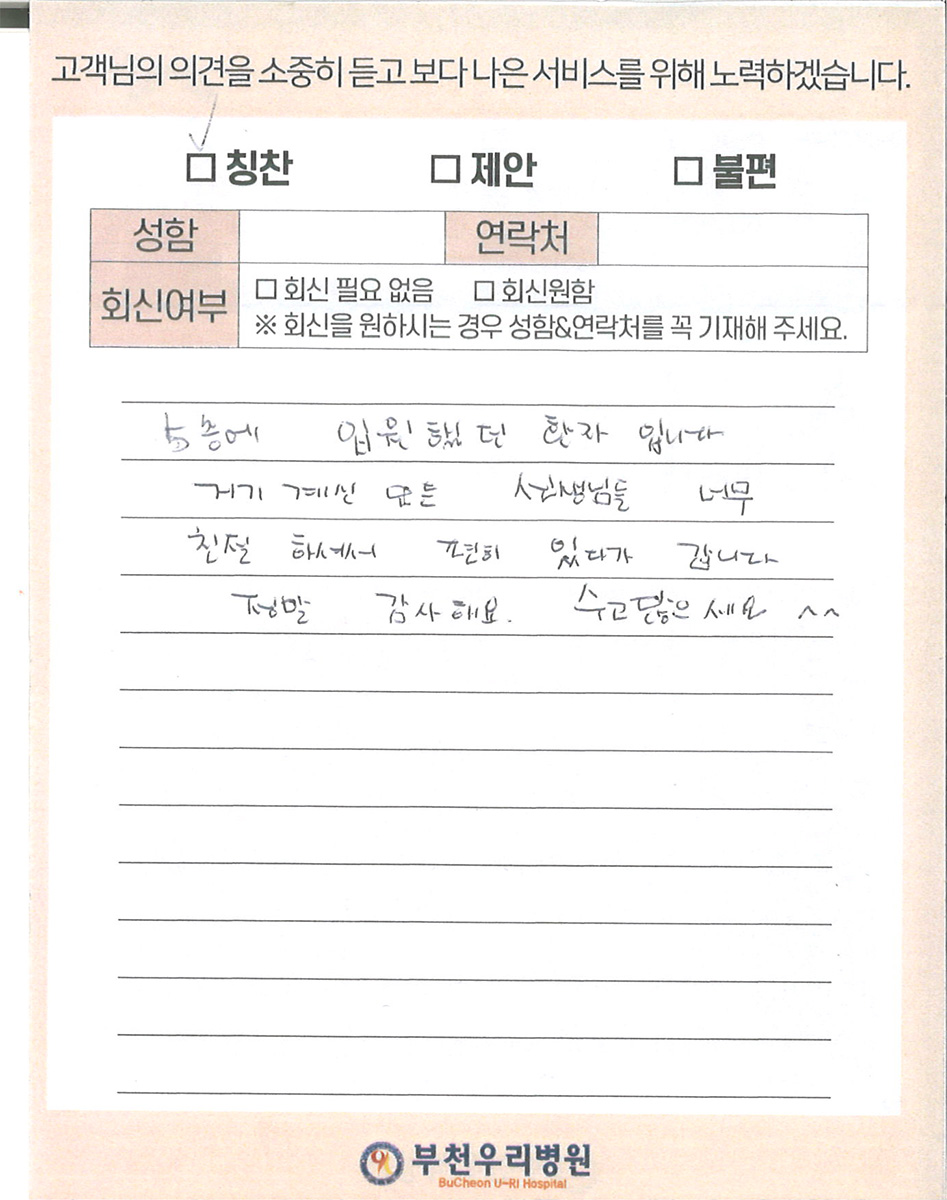 고객님의 의견을 소중히 듣고 보다 나은 서비스를 위해 노력하겠습니다.
□ 칭찬 □ 제안 □ 불편
성함 연락처
회신여부 □ 회신 필요 없음 □ 회신원함
※ 회신을 원하시는 경우 성함&연락처를 꼭 기재해 주세요.
5층에 입원했던 환자 입니다
거기 계신 모든 선생님들 너무
친절 하셔서 편히 있다가 갑니다
정말 감사해요. 수고많으세요 ^^
부천우리병원
BuCheon U-RI Hospital